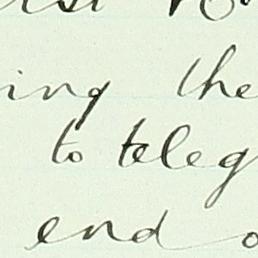 ing the
to teleg
end